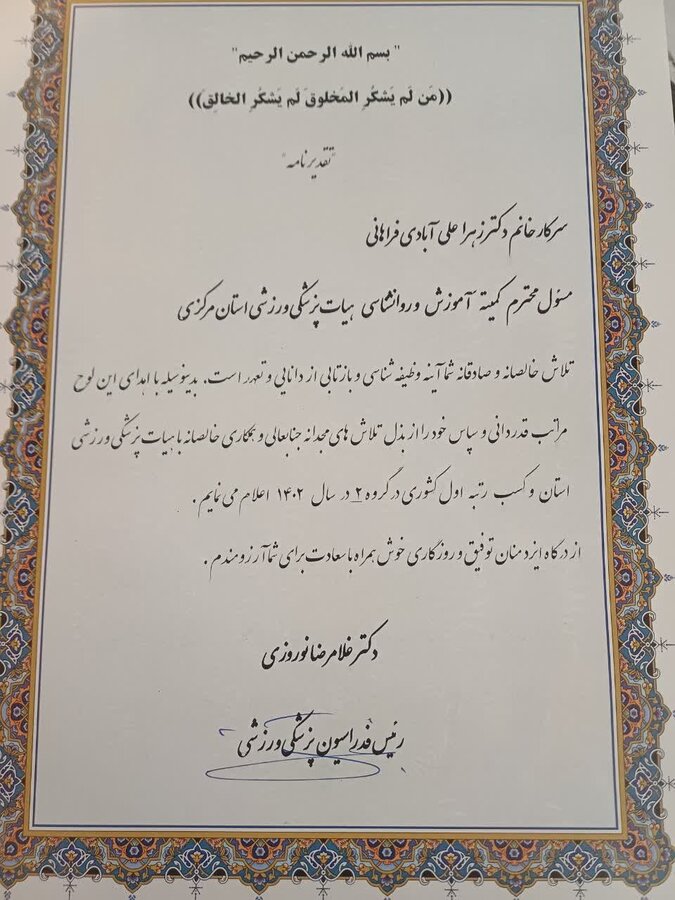 " بسم الله الرحمن الرحیم"
((مَن لَم یَشکُرِ المَخلوقَ لَم یَشکُرِ الخالِقَ))
"تقدیرنامه"
سرکار خانم دکتر زهرا علی آبادی فراهانی
مسئول محترم کمیته آموزش و روانشناسی هیات پزشکی ورزشی استان مرکزی
تلاش خالصانه و صادقانه شما آینه وظیفه شناسی و بازتابی از دانایی و تعهد است. بدینوسیله با اهدای این لوح
مراتب قدردانی و سپاس خود را از بذل تلاش های مجدانه جنابعالی و همکاری خالصانه با هیات پزشکی ورزشی
استان و کسب رتبه اول کشوری در گروه ۲ در سال ۱۴۰۲ اعلام می نمایم .
از درگاه ایزد منان توفیق و روزگاری خوش همراه با سعادت برای شما آرزومندم .
دکتر غلامرضا نوروزی
رئیس فدراسیون پزشکی ورزشی